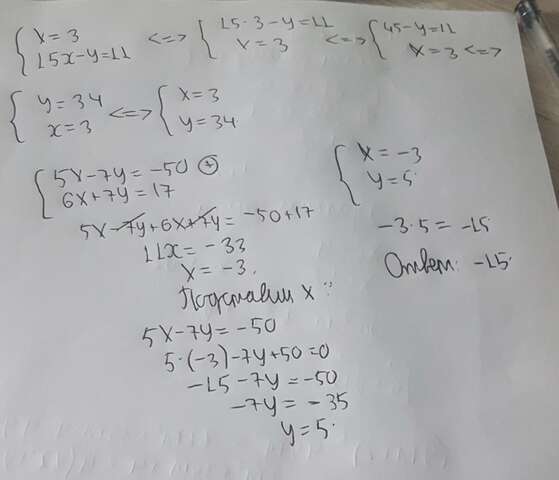 { x = 3
15x - y = 11 <=> { 15·3 - y = 11
x = 3 <=> { 45 - y = 11
x = 3 <=>
{ y = 34
x = 3 <=> { x = 3
y = 34
{ 5x - 7y = -50 (+)
6x + 7y = 17
5x - 7y + 6x + 7y = -50 + 17
11x = -33
x = -3.
Подставим x:
5x - 7y = -50
5·(-3) - 7y + 50 = 0
-15 - 7y = -50
-7y = -35
y = 5.
{ x = -3
y = 5
-3·5 = -15
Ответ: -15.